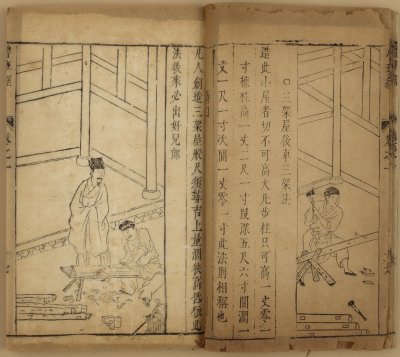 ○三架屋後車三架法
造此小屋者切不可高大凡步柱只可高一丈零一
寸棟柱高一丈二尺一寸段深五尺六寸間濶一
丈一尺一寸次間一丈零一寸此法則相稱也
凡人創造三架屋般尺須尋吉上量濶狹高低依此
法後來必出好兒郎
卷之一